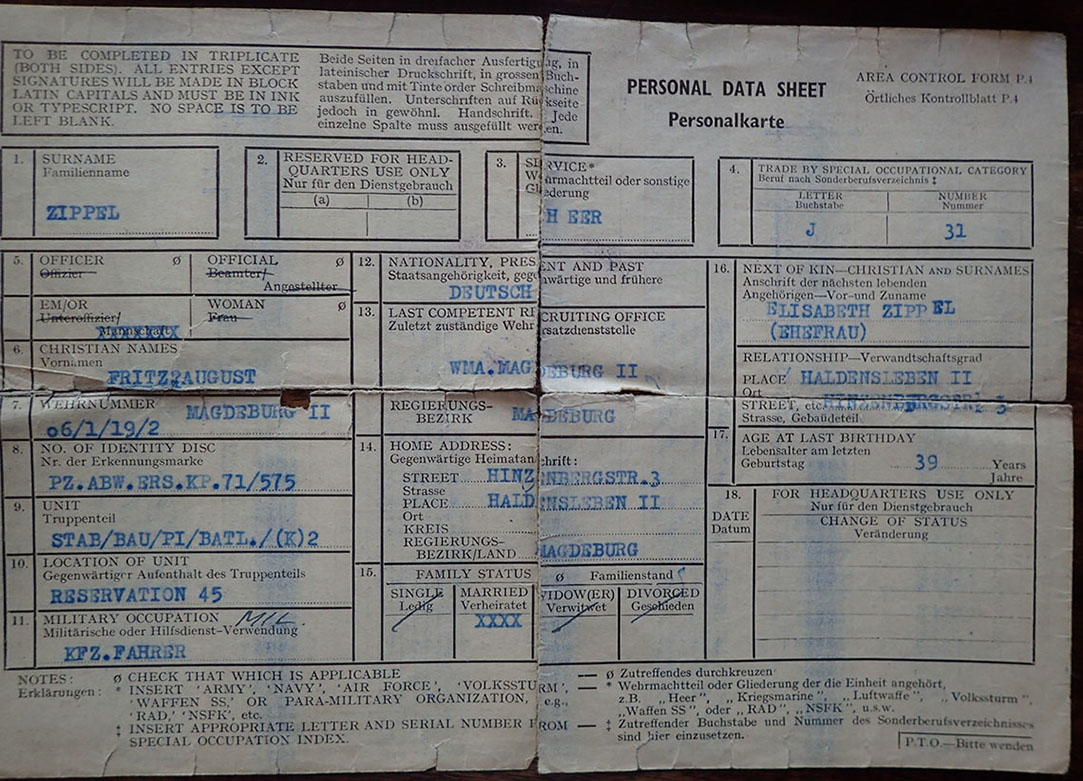 TO BE COMPLETED IN TRIPLICATE
(BOTH SIDES). ALL ENTRIES EXCEPT
SIGNATURES WILL BE MADE IN BLOCK
LATIN CAPITALS AND MUST BE IN INK
OR TYPESCRIPT. NO SPACE IS TO BE
LEFT BLANK.
Beide Seiten in dreifacher Ausfertigung, in
lateinischer Druckschrift, in grossen Buch-
staben und mit Tinte order Schreibmaschine
auszufüllen. Unterschriften auf Rückseite
jedoch in gewöhnl. Handschrift. Jede
einzelne Spalte muss ausgefüllt werden.
PERSONAL DATA SHEET
Personalkarte
AREA CONTROL FORM P.4
Örtliches Kontrollblatt P.4
1. SURNAME
Familienname
ZIPPEL
2. RESERVED FOR HEAD-
QUARTERS USE ONLY
Nur für den Dienstgebrauch
(a) (b)
3. SERVICE*
Wehrmachtteil oder sonstige
Gliederung
H EER
4. TRADE BY SPECIAL OCCUPATIONAL CATEGORY
Beruf nach Sonderberufsverzeichnis ‡
LETTER
Buchstabe
NUMBER
Nummer
J 31
5. OFFICER ø
Offizier
OFFICIAL ø
Beamter/
Angestellter
EM/OR
Unteroffizier/
Mannschaft
WOMAN ø
Frau
6. CHRISTIAN NAMES
Vornamen
FRITZ,AUGUST
7. WEHRNUMMER MAGDEBURG II
06/1/19/2
8. NO. OF IDENTITY DISC
Nr. der Erkennungsmarke
PZ.ABW.ERS.KP.71/575
9. UNIT
Truppenteil
STAB/BAU/PI/BATL./(K)2
10. LOCATION OF UNIT
Gegenwärtiger Aufenthalt des Truppenteils
RESERVATION 45
11. MILITARY OCCUPATION MIL
Militärische oder Hilfsdienst-Verwendung
KFZ.FAHRER
12. NATIONALITY, PRESENT AND PAST
Staatsangehörigkeit, gegenwärtige und frühere
DEUTSCH
13. LAST COMPETENT RECRUITING OFFICE
Zuletzt zuständige Wehrersatzdienststelle
WMA.MAGDEBURG II
REGIERUNGS-
BEZIRK MAGDEBURG
14. HOME ADDRESS:
Gegenwärtige Heimatanschrift:
STREET HINZENBERGSTR.3
Strasse
PLACE HALDENSLEBEN II
Ort
KREIS
REGIERUNGS-
BEZIRK/LAND MAGDEBURG
15. FAMILY STATUS ø Familienstand
SINGLE
Ledig
MARRIED
Verheiratet
XXXX
WIDOW(ER)
Verwitwet
DIVORCED
Geschieden
16. NEXT OF KIN—CHRISTIAN AND SURNAMES
Anschrift der nächsten lebenden
Angehörigen—Vor-und Zuname
ELISABETH ZIPPEL
(EHEFRAU)
RELATIONSHIP—Verwandtschaftsgrad
PLACE HALDENSLEBEN II
Ort
STREET, etc. HINZENBERGSTR. 3
Strasse, Gebäudeteil
17. AGE AT LAST BIRTHDAY
Lebensalter am letzten
Geburtstag 39 Years
Jahre
18. DATE
Datum
FOR HEADQUARTERS USE ONLY
Nur für den Dienstgebrauch
CHANGE OF STATUS
Veränderung
NOTES:
Erklärungen:
ø CHECK THAT WHICH IS APPLICABLE
* INSERT 'ARMY', 'NAVY', 'AIR FORCE', 'VOLKSSTURM',
'WAFFEN SS,' OR PARA-MILITARY ORGANIZATION, e.g.,
'RAD,' 'NSFK', etc.
‡ INSERT APPROPRIATE LETTER AND SERIAL NUMBER FROM
SPECIAL OCCUPATION INDEX.
— ø Zutreffendes durchkreuzen
— * Wehrmachtteil oder Gliederung der die Einheit angehört,
z.B. „Heer", „Kriegsmarine", „Luftwaffe", „Volkssturm",
„Waffen SS", oder „RAD", „NSFK", u.s.w.
— ‡ Zutreffender Buchstabe und Nummer des Sonderberufsverzeichnisses
sind hier einzusetzen.
P.T.O.—Bitte wenden